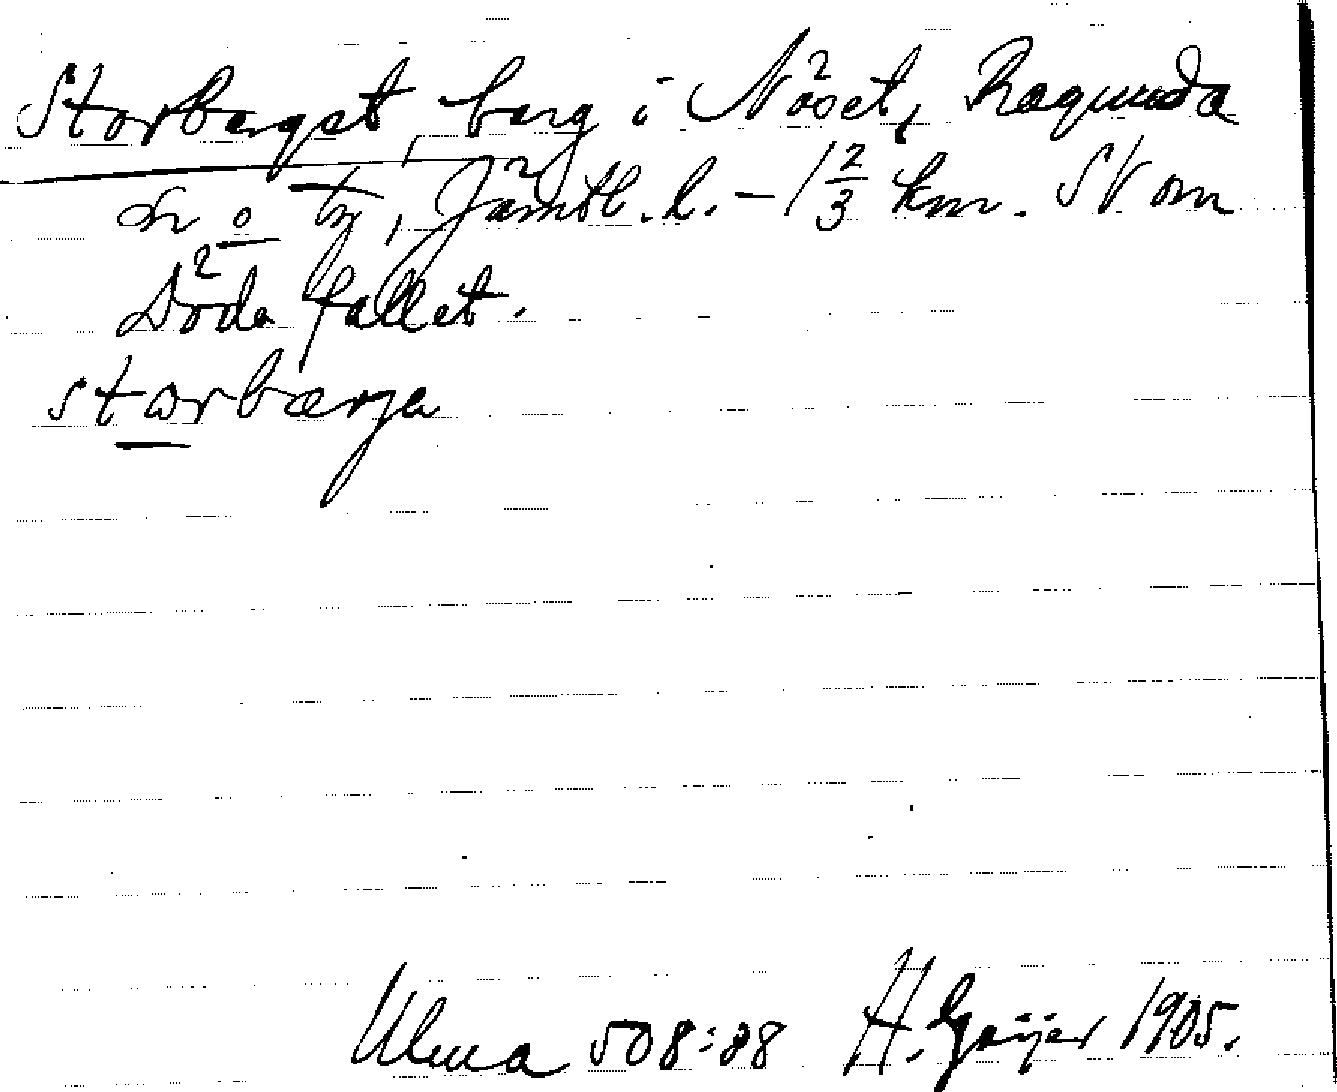 Storberget, berg i Näset, Ragunda
sn o. tg, Jämtl. l. – 1 2/3 km. SV om
Döda fallet.
storbærja
Ulma 508:88 H. Geijer 1905.